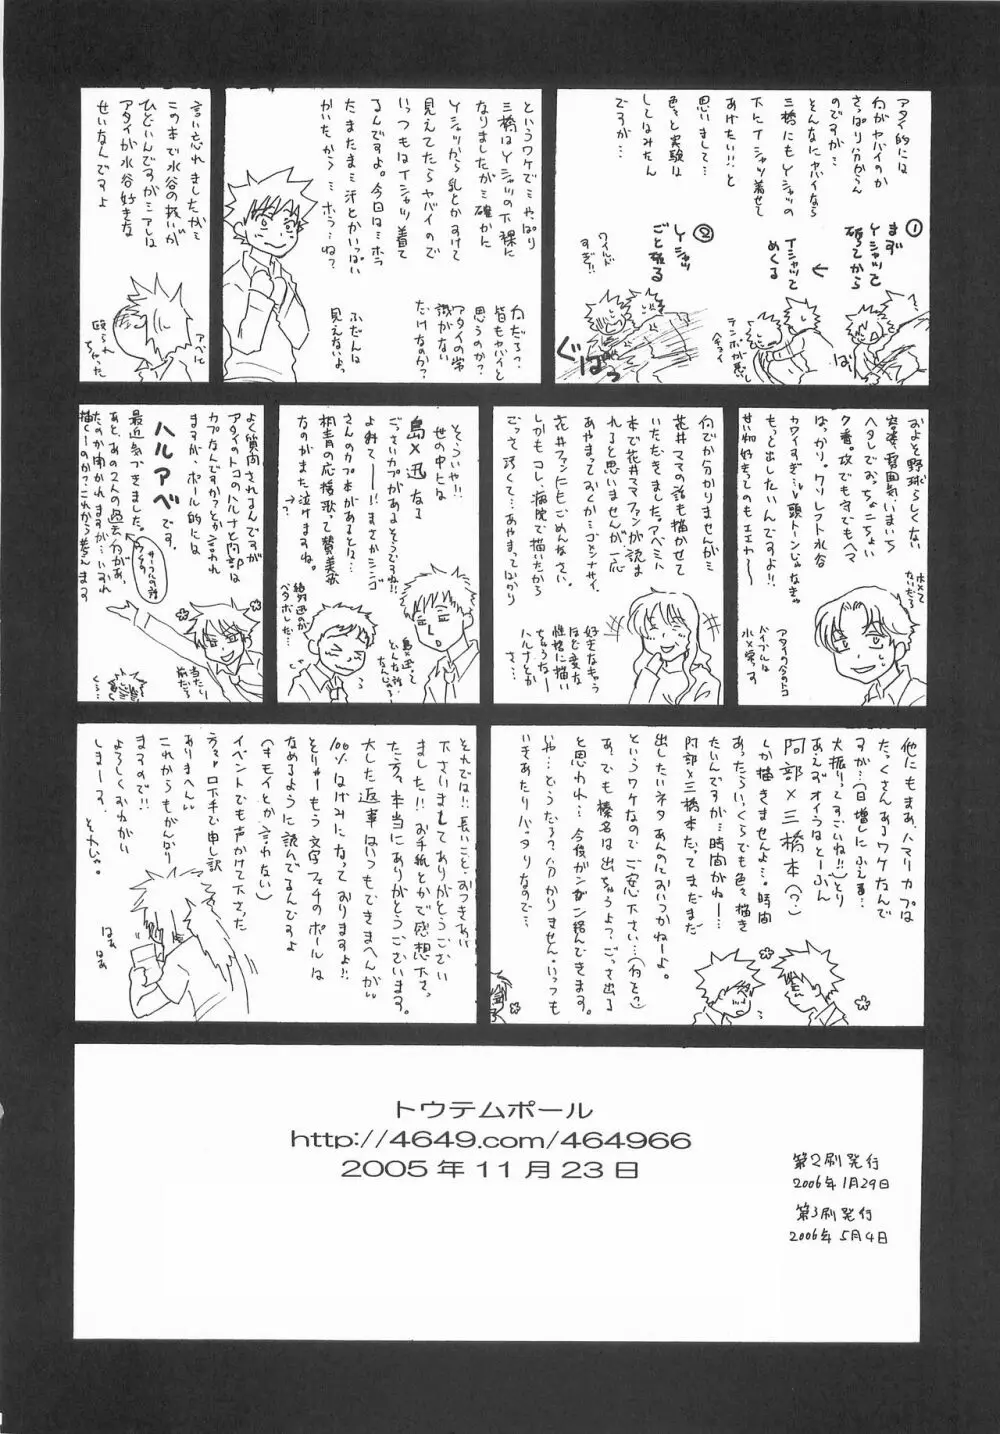 アタイ的には
何がヤバイのか
さっぱり分からん
のですが…
そんなにヤバイなら
三橋にもYシャツの
下にTシャツ着せて
あげたい!!と
思いまして…
色々と実験は
してはみたん
ですが…
①
まず
Yシャツを
破ってから
Tシャツを
めくる
②
Yシャツ
ごと破る
ワイルド
すぎ!!
テンポが悪い
ぐばっ
というワケで…やっぱり
三橋はYシャツの下裸に
なりましたが…確かに
Yシャツから乳とかすけて
見えてたらヤバイので
いっつもはTシャツ着て
るんですよ。今回は…ホラ
たまたま…汗とかいっぱい
かいたから…ホラ…ね?
何だろう?
皆もヤバイと
思うのか?
アタイの常
識がない
だけなのか?
ふだんは
見えないよ。
言い忘れましたが…
この本で水谷の扱いが
ひどいんですが…アレは
アタイが水谷好きな
せいなんですよ
アベに
殴られ
ちゃった
およそ野球らしくない
容姿、雰囲気、いまいち
ヘタレでおっちょこちょい
9番。攻でも守でもヘマ
ばっかり。クソレフト水谷
カワイすぎ…♥頭トーンじゃなきゃ
もっと出したいんですよ!!
せい物好きってのもエエわ〜〜
水×て
ないだろ
アタイの今のトコ
バイブルは
水×栄っす
何でか分かりませんが…
花井ママの話も描かせて
いただきました。アベミハ
本で花井ママファンが読ま
れるとは思いませんが一応
あやまっておくか…ゴメンナサイ。
花井ファンにもごめんなさい。
しかもコレ、病院で描いたから
ごっさ汚くて…あやまってばかり
好きなキャラ
ほど変な
性格に描い
ちゃうなー
ハルナとか
さ…
そそういや!!
世の中には
島×迅な
ごっさいカプがあるそうですね!!
よみてー〜!!まさかシンゴ
さんのカプ本があるとは…
桐青の応援歌って賛美歌
なのがまた泣けますね。
島×迅って
どんな話
なんじゃ
絶対迅のが
ベタボレした…
よく質問されるんですが
アタイのトコのハルナと阿部は
カプなんですか?とか言われ
ますが、ポール的には
ハルアベです。
最近気づきました。
あと、あの2人の過去に何があっ
たのか聞かれますが…いずれ
描くーのかっこれから考えます
サークルの話
当たり
前だろ
くっ…
他にもまあ、ハマリカプは
たっくさんあるワケなんで
すが…(日増しにふえる…
大振りってすごいね!!)とり
あえずオイラはとーぶん
阿部×三橋本(?)
しか描きませんよ…。時間
あったらいっくらでも色々描き
たいんですが…時間がねー…
阿部×三橋本だってまだまだ
出したいネタあんのにおいつかねーよ。
というワケなのでご安心下さい…(何を?)
あ、でも榛名は出ちゃうよ?ごっさ出る
と思われ…。今後ガンガン絡んできます。
いや…どうだろ?分かりません。いっつも
いきあたりバッタリなので…
それでは!!長いこと、おつきあい
下さいましてありがとうござい
ました!!お手紙とかで感想下さっ
た方々、本当にありがとうございます。
大した返事はいつもできまへんが、
100%はげみになっておりますよ!!
そりゃーもう文字フェチのポールは
なめるように読んでるんですよ
(キモイとか言わない)
イベントでも声かけて下さった
方々、口下手で申し訳
ありまへん。
これからもがんばり
まするので!!
よろしくおねがい
しまーす。
それじゃ。
はぁ
はぁ
トウテムポール
http://4649.com/464966
2005年11月23日
第2刷発行
2006年1月29日
第3刷発行
2006年5月4日